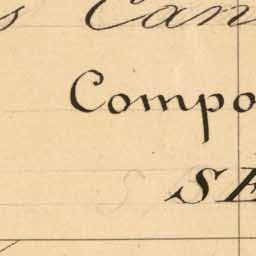 s Can
Compo
SE